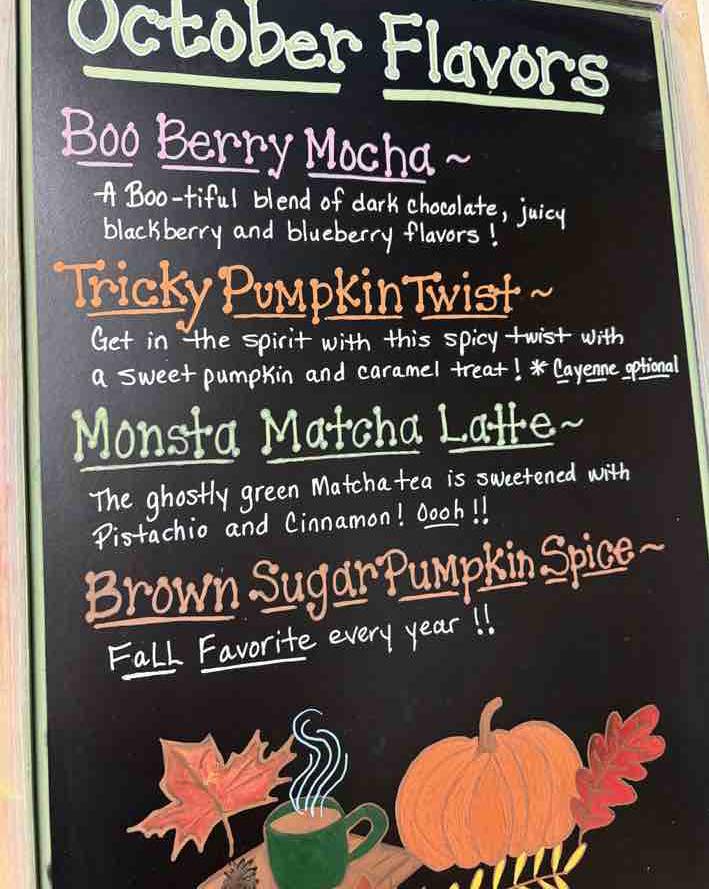 October Flavors
Boo Berry Mocha ~
A Boo-tiful blend of dark chocolate, juicy
blackberry and blueberry flavors !
Tricky Pumpkin Twist ~
Get in the spirit with this spicy twist with
a sweet pumpkin and caramel treat ! * Cayenne optional
Monsta Matcha Latte ~
The ghostly green Matcha tea is sweetened with
Pistachio and Cinnamon ! Oooh !!
Brown Sugar Pumpkin Spice ~
Fall Favorite every year !!